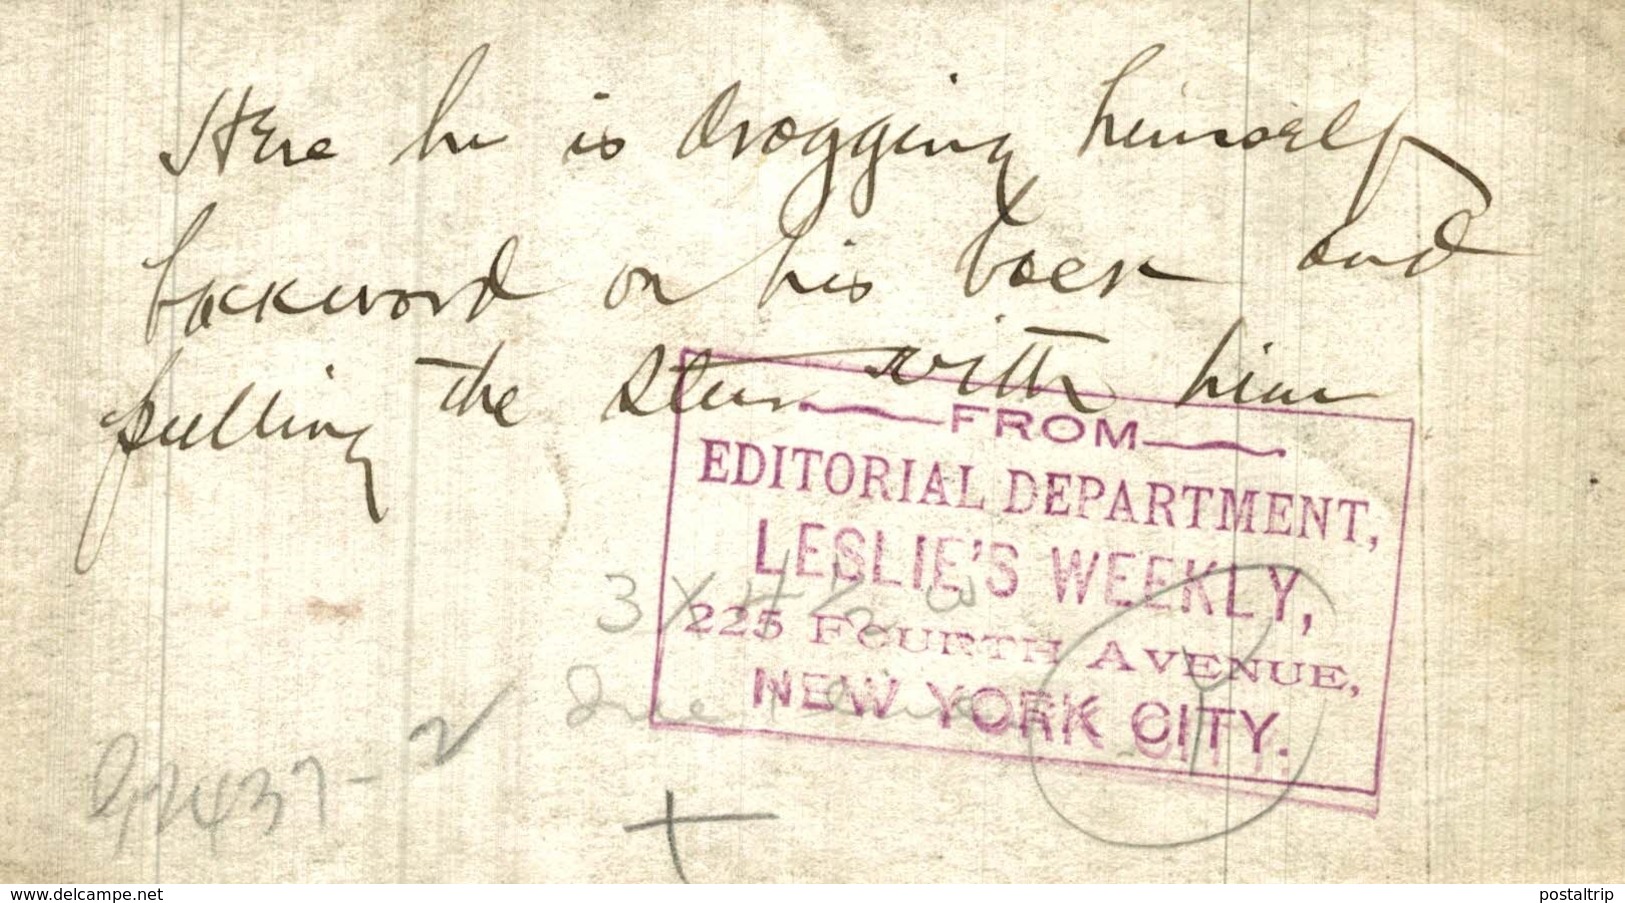 Here he is dragging himself
backward on his back and
pulling the steer with him
FROM
EDITORIAL DEPARTMENT,
LESLIE'S WEEKLY,
3 X 4½ w
225 FOURTH AVENUE,
NEW YORK CITY.
437-
www.delcampe.net
postaltrip